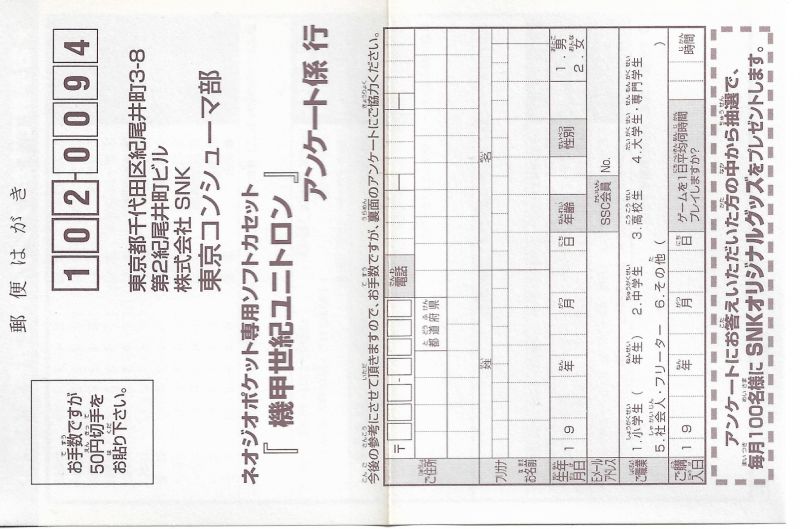 郵便はがき
102-0094
東京都千代田区紀尾井町3-8
第2紀尾井町ビル
株式会社 SNK
東京コンシューマ部
お手数ですが
50円切手を
お貼り下さい。
ネオジオポケット専用ソフトカセット
『機甲世紀ユニトロン』
アンケート係 行
今後の参考にさせて頂きますので、お手数ですが、裏面のアンケートにご協力ください。
ご住所 〒 - 電話
都道府県
フリガナ
お名前 姓 名
生年月日 19 年 月 日 年齢 性別 1.男 2.女
Eメールアドレス SSC会員 No.
ご職業 1.小学生( 年生) 2.中学生 3.高校生 4.大学生・専門学生
5.社会人・フリーター 6.その他( )
ご購入日 19 年 月 日 ゲームを1日平均何時間プレイしますか? 時間
アンケートにお答えいただいた方の中から抽選で、
毎月100名様に SNKオリジナルグッズをプレゼントします。